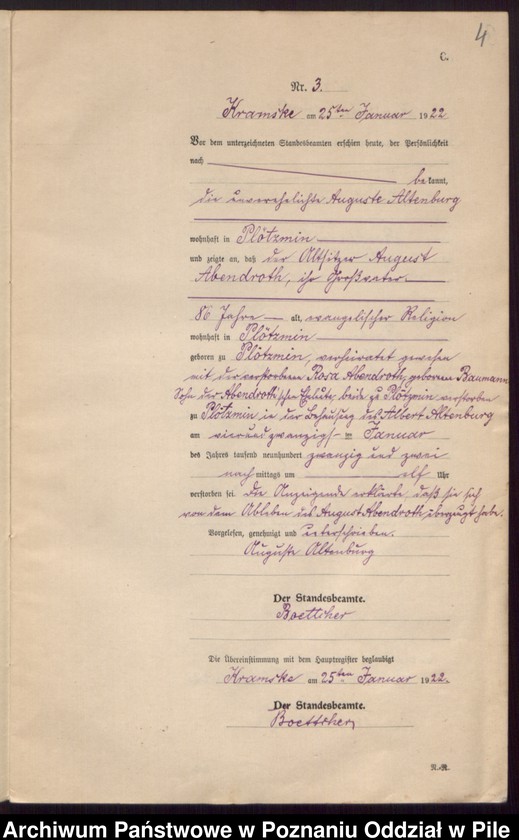 4
C.
Nr. 3.
Kramske am 25ten Januar 1922
Vor dem unterzeichneten Standesbeamten erschien heute, der Persönlichkeit
nach
be kannt,
die unverehelichte Auguste Altenburg
wohnhaft in Plötzmin
und zeigte an, daß der Altsitzer August
Abendroth, ihr Großvater
86 Jahre alt, evangelischer Religion
wohnhaft in Plötzmin
geboren zu Plötzmin, verheiratet gewesen
mit der verstorbenen Rosa Abendroth, geborenen Baumann,
Sohn der Abendroth'schen Eheleute, beide zu Plötzmin verstorben
zu Plötzmin in der Behausung des Albert Altenburg
am vierundzwanzigsten Januar
des Jahres tausend neunhundert zwanzig und zwei
nach mittags um elf Uhr
verstorben sei. Die Anzeigende erklärte, daß sie sich
von dem Ableben des August Abendroth überzeugt habe.
Vorgelesen, genehmigt und unterschrieben.
Auguste Altenburg
Der Standesbeamte.
Boettcher
Die Übereinstimmung mit dem Hauptregister beglaubigt
Kramske am 25ten Januar 1922.
Der Standesbeamte.
Boettcher
R.-R.
Archiwum Państwowe w Poznaniu Oddział w Pile